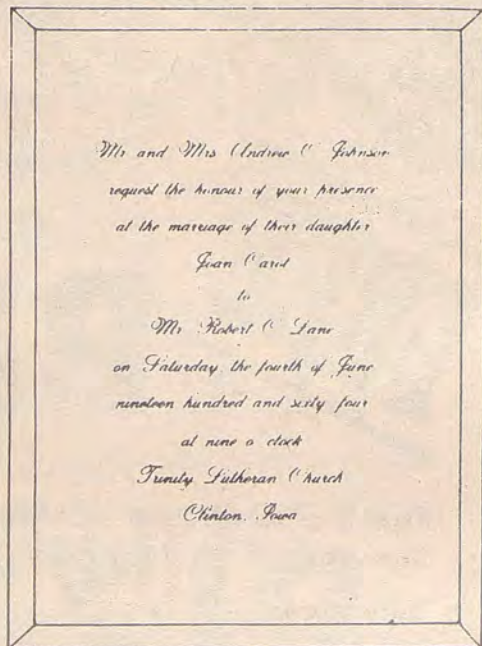 Mr and Mrs Andrew C Johnson
request the honour of your presence
at the marriage of their daughter
Joan Carol
to
Mr Robert C Lane
on Saturday, the fourth of June
nineteen hundred and sixty four
at nine o clock
Trinity Lutheran Church
Clinton, Iowa